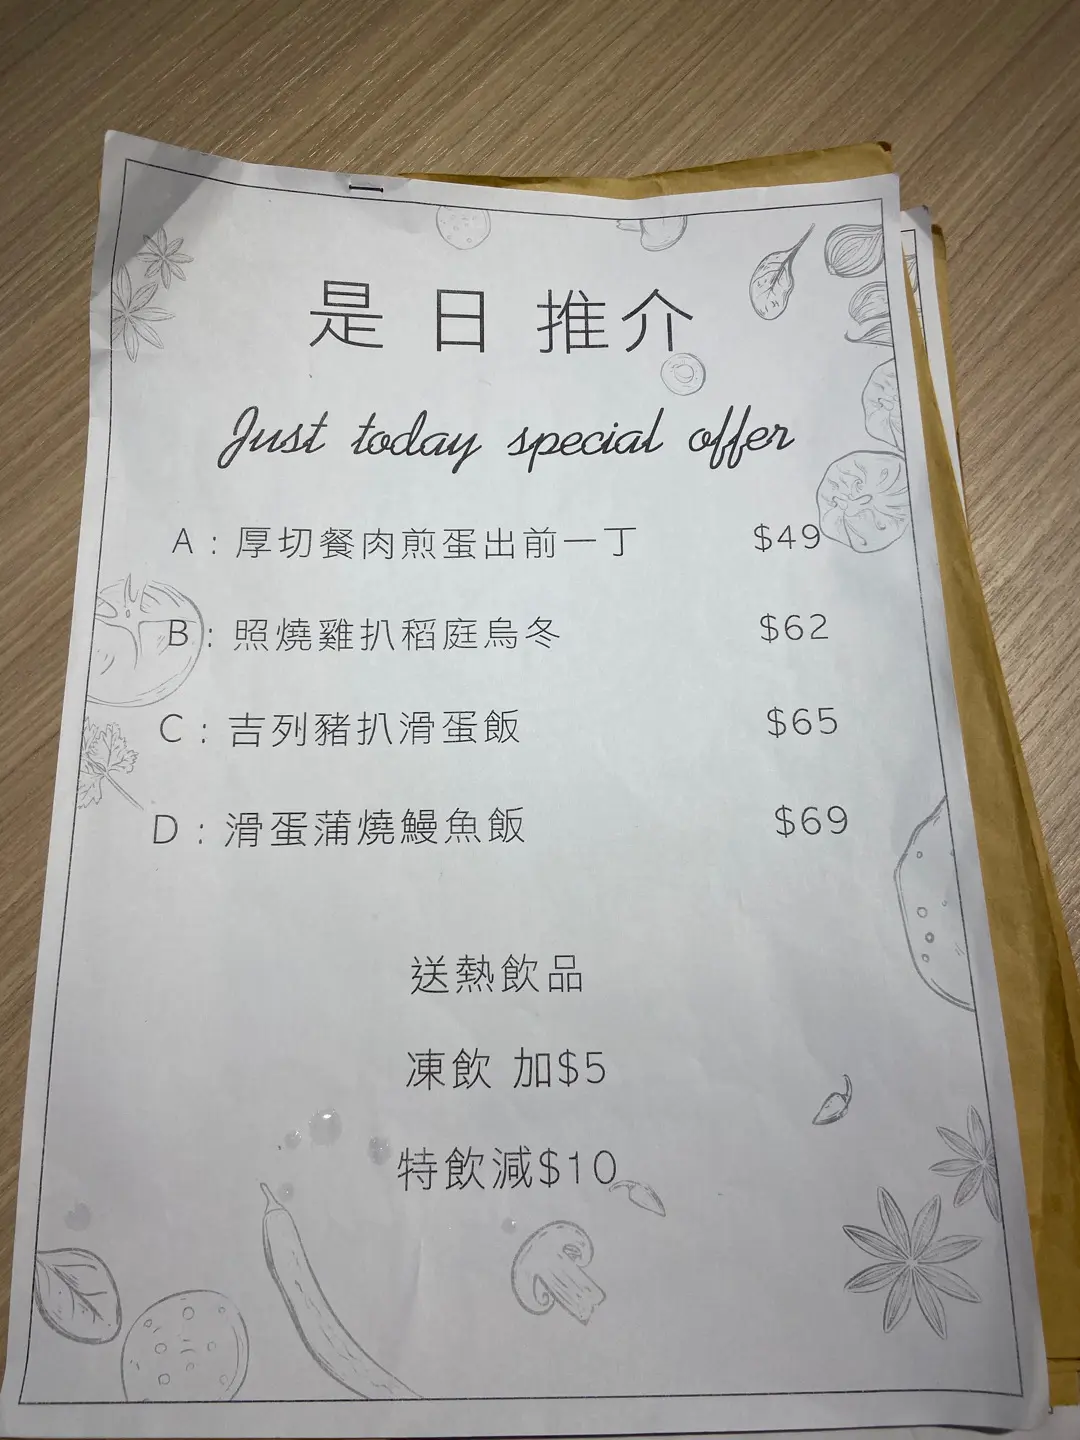 是日推介
Just today special offer
A : 厚切餐肉煎蛋出前一丁 $49
B : 照燒雞扒稻庭烏冬 $62
C : 吉列豬扒滑蛋飯 $65
D : 滑蛋蒲燒鰻魚飯 $69
送熱飲品
凍飲 加$5
特飲減$10